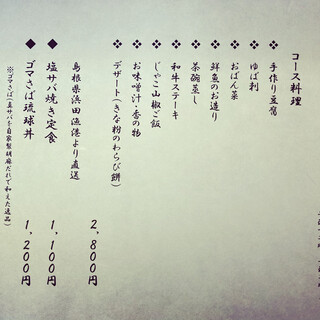 コース料理
❖ 手作り豆腐
❖ ゆば刺
❖ おばん菜
❖ 鮮魚のお造り
❖ 茶碗蒸し
❖ 和牛ステーキ
❖ じゃこ山椒ご飯
❖ お味噌汁・香の物
❖ デザート(きな粉のわらび餅)
2,800円
島根県浜田漁港より直送
◆ 塩サバ焼き定食 1,100円
◆ ゴマさば琉球丼 1,200円
※ゴマさば(真サバを自家製胡麻だれで和えた逸品)